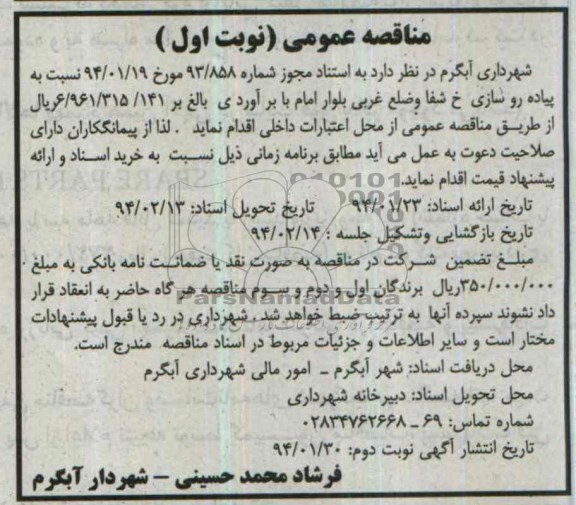 مناقصه عمومی (نوبت اول)
شهرداری آبگرم در نظر دارد به استناد مجوز شماره ۹۳/۸۵۸ مورخ ۹۴/۰۱/۱۹ نسبت به
پیاده رو سازی خ شفا وضلع غربی بلوار امام با بر آورد ی بالغ بر ۶/۹۶۱/۳۱۵/۱۴۱ریال
از طریق مناقصه عمومی از محل اعتبارات داخلی اقدام نماید . لذا از پیمانکاران دارای
صلاحیت دعوت به عمل می آید مطابق برنامه زمانی ذیل نسبت به خرید اسناد و ارائه
پیشنهاد قیمت اقدام نماید.
تاریخ ارائه اسناد: ۹۴/۰۱/۲۳ تاریخ تحویل اسناد: ۹۴/۰۲/۱۳
تاریخ بازگشایی وتشکیل جلسه : ۹۴/۰۲/۱۴
مبلغ تضمین شرکت در مناقصه به صورت نقد یا ضمانت نامه بانکی به مبلغ
۳۵۰/۰۰۰/۰۰۰ریال برندگان اول و دوم و سوم مناقصه هر گاه حاضر به انعقاد قرار
داد نشوند سپرده آنها به ترتیب ضبط خواهد شد . شهرداری در رد یا قبول پیشنهادات
مختار است و سایر اطلاعات و جزئیات مربوط در اسناد مناقصه مندرج است.
محل دریافت اسناد: شهر آبگرم – امور مالی شهرداری آبگرم
محل تحویل اسناد: دبیرخانه شهرداری
شماره تماس: ۶۹ – ۰۲۸۳۴۷۶۲۶۶۸
تاریخ انتشار آگهی نوبت دوم: ۹۴/۰۱/۳۰
فرشاد محمد حسینی – شهردار آبگرم
ParsNamadData